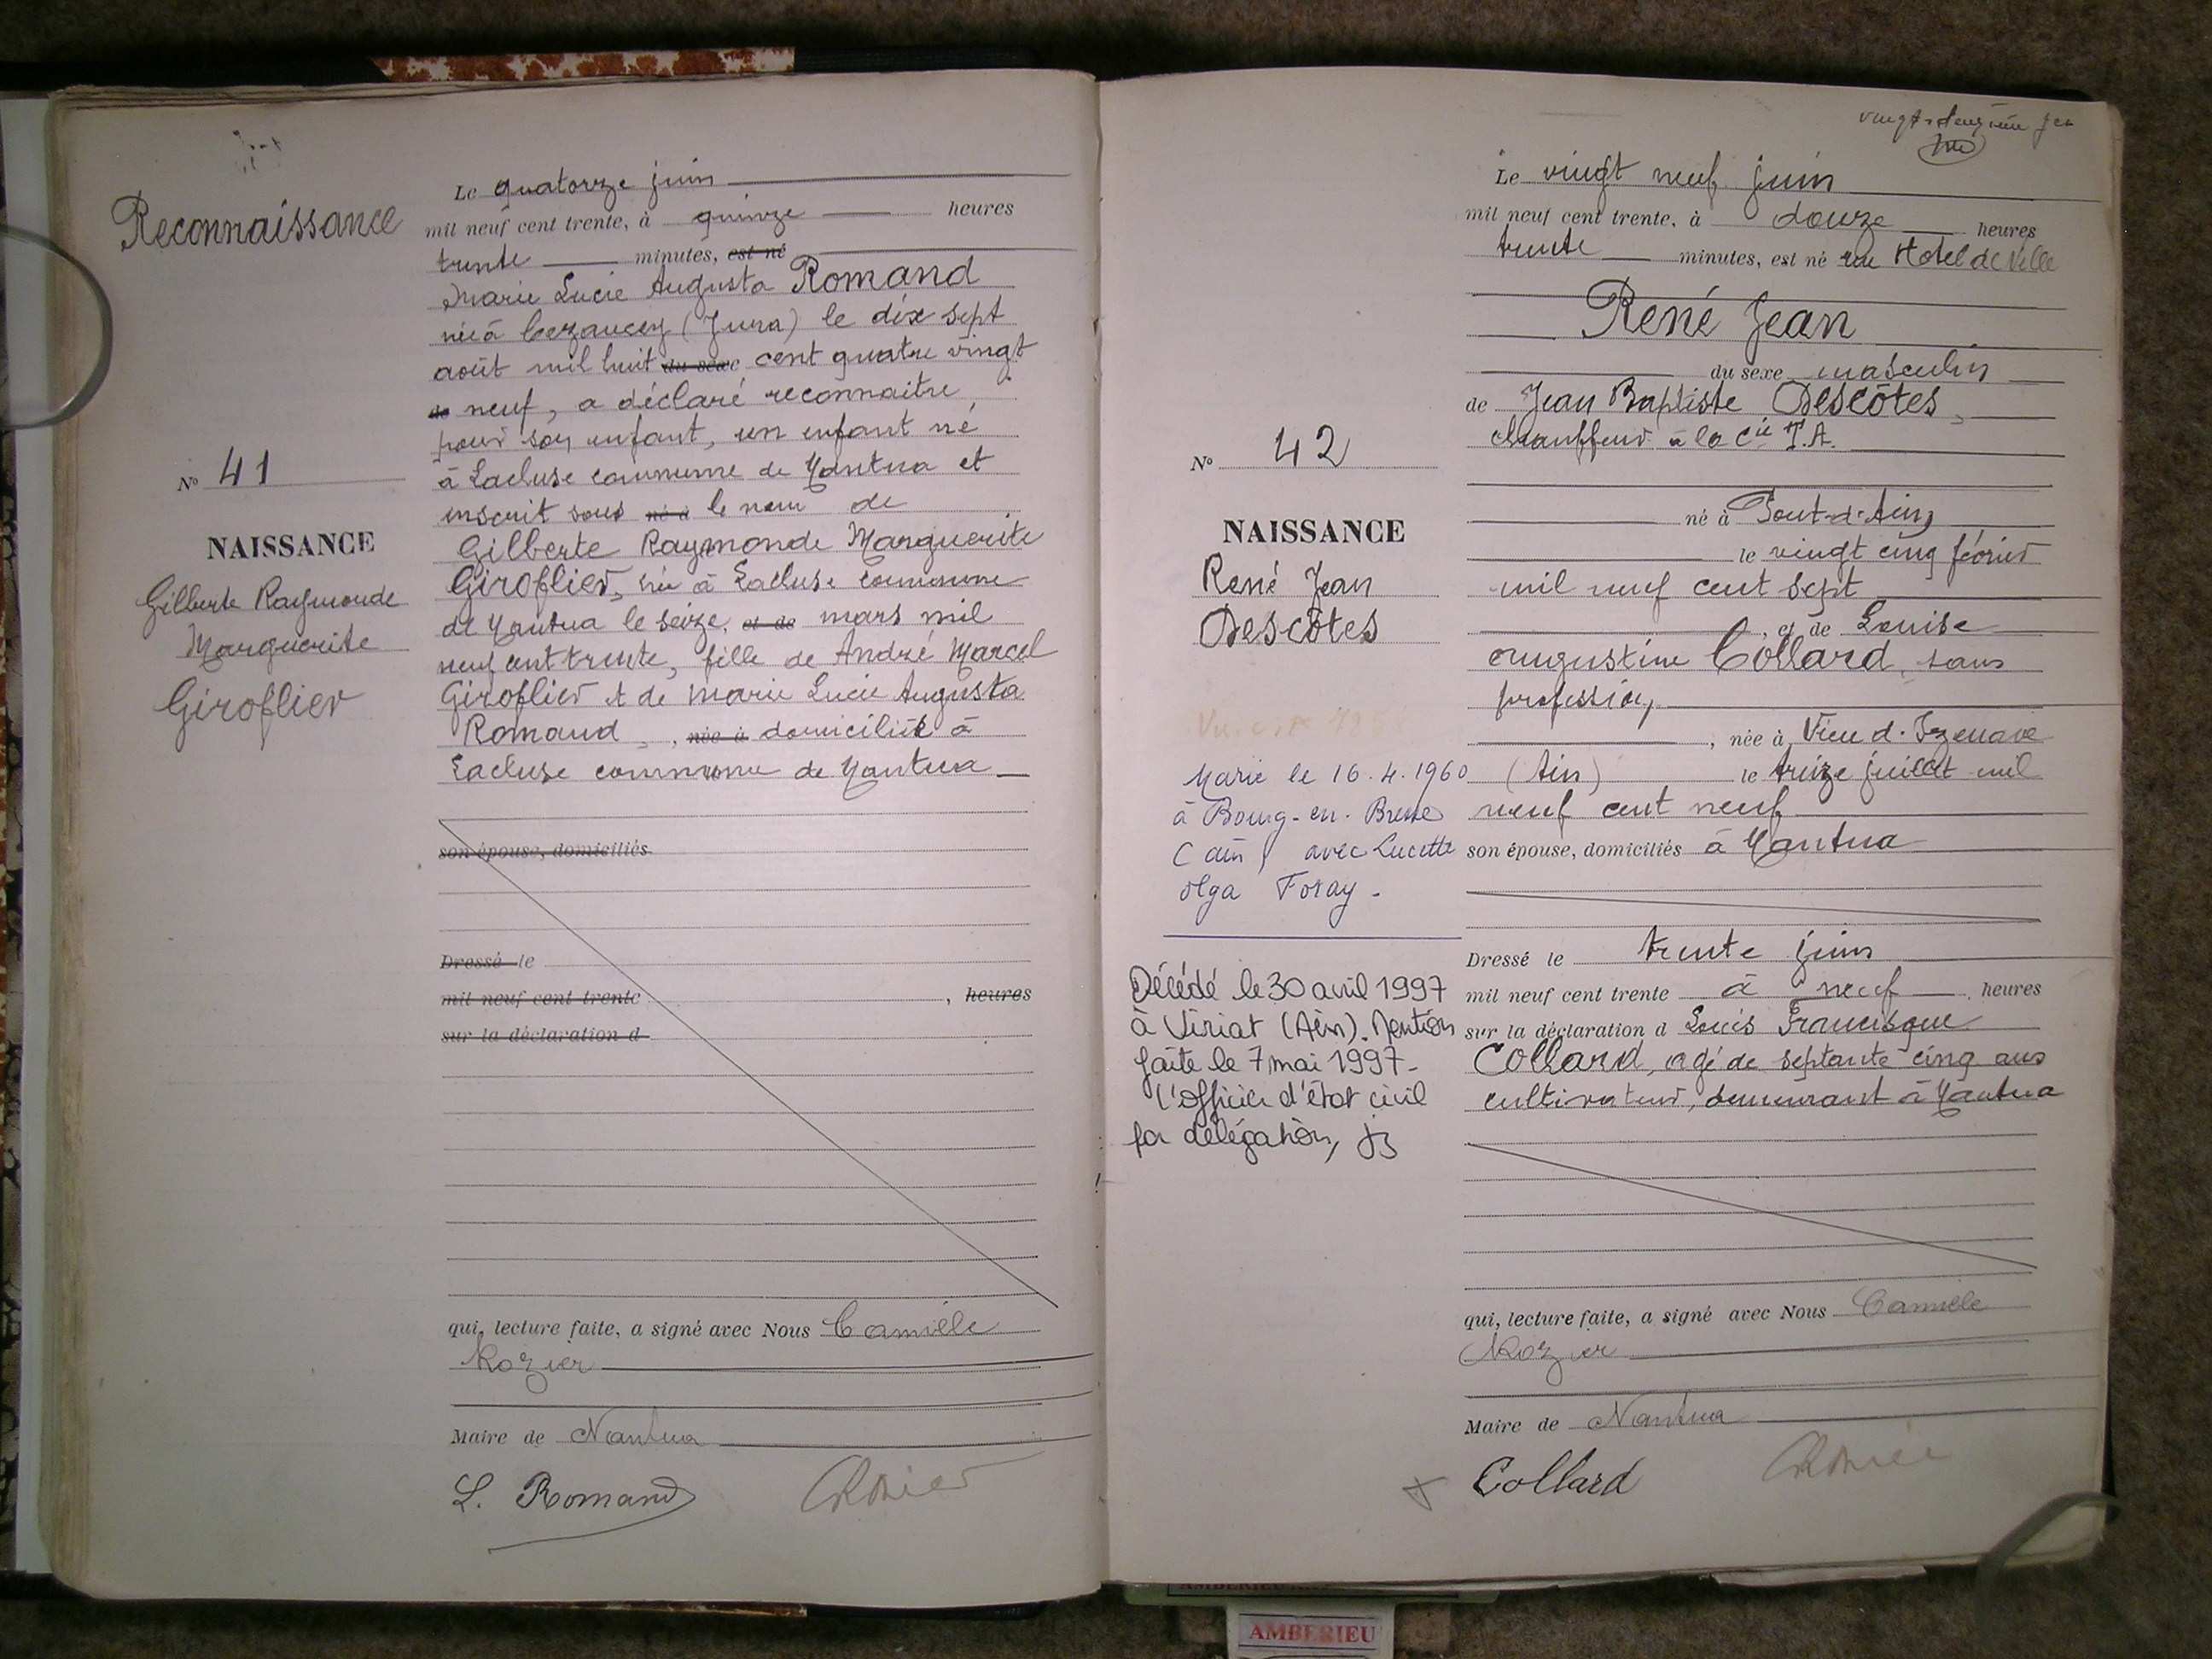 Reconnaissance
N° 41
NAISSANCE
Gilberte Raymonde
Marguerite
Giroflier
Le quatorze juin
mil neuf cent trente, à quinze heures
trente minutes, est né
Marie Lucie Augusta Romand
née à (Jura) le dix sept
août mil huit du sexe cent quatre vingt
de neuf, a déclaré reconnaitre,
pour son enfant, un enfant né
à Lacluse commune de Nantua et
inscrit sous né à le nom de
Gilberte Raymonde Marguerite
Giroflier, née à Lacluse commune
de Nantua le seize, et de mars mil
neuf cent trente, fille de André Marcel
Giroflier et de Marie Lucie Augusta
Romand, , née à domiciliée à
Lacluse commune de Nantua
son épouse, domiciliés
Dressé le
mil neuf cent trente , heures
sur la déclaration d
qui, lecture faite, a signé avec Nous Camille
Rozier
Maire de Nantua
L. Romand
vingt-deuxième
Le vingt neuf juin
mil neuf cent trente, à douze heures
trente minutes, est né rue Hotel de Ville
René Jean
du sexe masculin
de Jean Baptiste Descôtes,
chauffeur à la Cie T.A.
né à Pont-d'Ain,
le vingt cinq février
mil neuf cent sept
, et de Louise
Augustine Collard, sans
profession,
, née à Vieu d'Izenave
(Ain) le treize juillet mil
neuf cent neuf
son épouse, domiciliés à Nantua
Dressé le trente juin
mil neuf cent trente à neuf heures
sur la déclaration d Louis Francisque
Collard, agé de septante cinq ans
cultivateur, demeurant à Nantua
qui, lecture faite, a signé avec Nous Camille
Rozier
Maire de Nantua
Collard
N° 42
NAISSANCE
René Jean
Descôtes
Marié le 16.4.1960
à Bourg-en-Bresse
(ain) avec Lucette
olga Foray.
Décédé le 30 avril 1997
à Viriat (Ain). Mention
faite le 7 mai 1997.
L'officier d'état civil
par délégation,
AMBERIEU